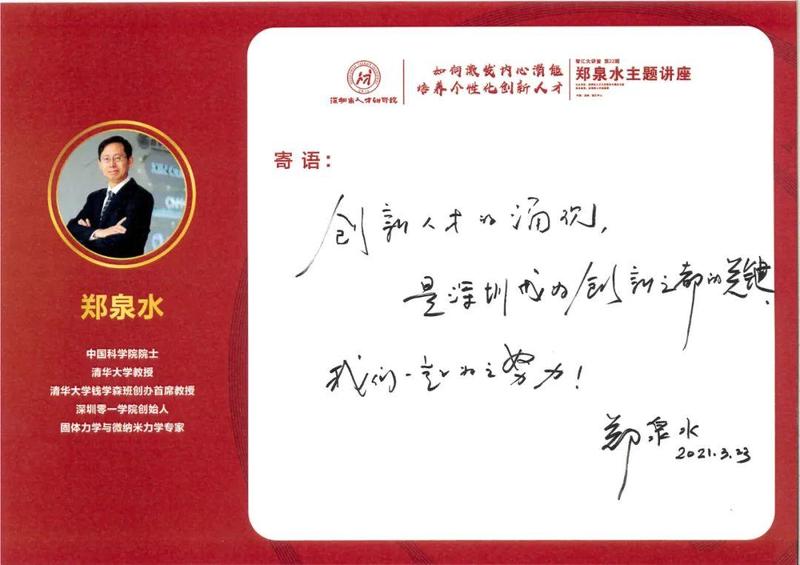 郑泉水
中国科学院院士
清华大学教授
清华大学钱学森班创办首席教授
深圳零一学院创始人
固体力学与微纳米力学专家
深圳市人才研究院
如何激发内心潜能
培养个性化创新人才
智汇大讲堂 第22期
郑泉水主题讲座
寄语：
创新人才的涌现，
是深圳成为创新之都的关键，
我们一起为之努力！
郑泉水
2021.3.23